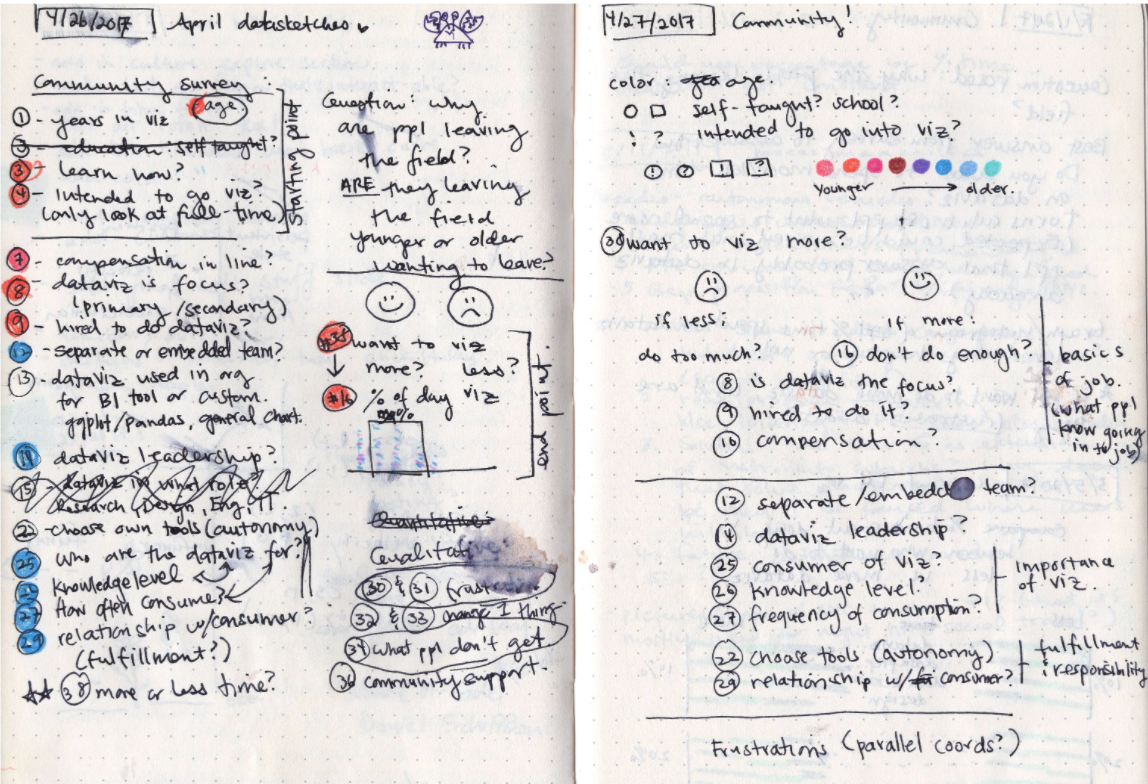 4/26/2017 April datasketches
Community survey:
age
① - years in viz
② - education self taught?
③ - learn how?
④ - Intended to go viz?
(only look at full-time)
starting point
⑦ - compensation in line?
⑧ - dataviz is focus?
(primary / secondary)
⑨ - hired to do dataviz?
⑫ - separate or embedded team?
⑬ - dataviz used in org
for BI tool or custom.
ggplot/pandas, general chart.
⑭ dataviz leadership?
⑮ - dataviz in what role?
Research, Design, Eng, IT
㉒ - choose own tools (autonomy)
㉕ who are the dataviz for?
㉖ knowledge level
㉗ how often consume?
㉙ relationship w/consumer?
(fulfillment?)
㊳ more or less time?
Question: why
are ppl leaving
the field?
ARE they leaving
the field
younger or older
wanting to leave?
#38 want to viz
more? less?
#16 % of day viz
100%
third point
Quantitative
Qualitati
㉚ & ㉛ trust
㉜ & ㉝ change 1 thing
㉞ what ppl don't get
㊱ community support.
4/27/2017 Community!
color age
○ □ self-taught? school?
! ? intended to go into viz?
! ? ! ?
younger → older.
㊳ want to viz more?
if less:
do too much?
if more:
⑯ don't do enough?
⑧ is dataviz the focus?
⑨ hired to do it?
⑩ compensation.
basics
of job.
(what ppl
know going
in to job)
⑫ separate/embedded team?
⑭ dataviz leadership?
㉕ consumer of viz.
㉖ knowledge level?
㉗ frequency of consumption?
importance
of viz.
㉒ choose tools (autonomy)
㉙ relationship w/ consumer?
fulfillment
& responsibility
Frustrations (parallel coords?)